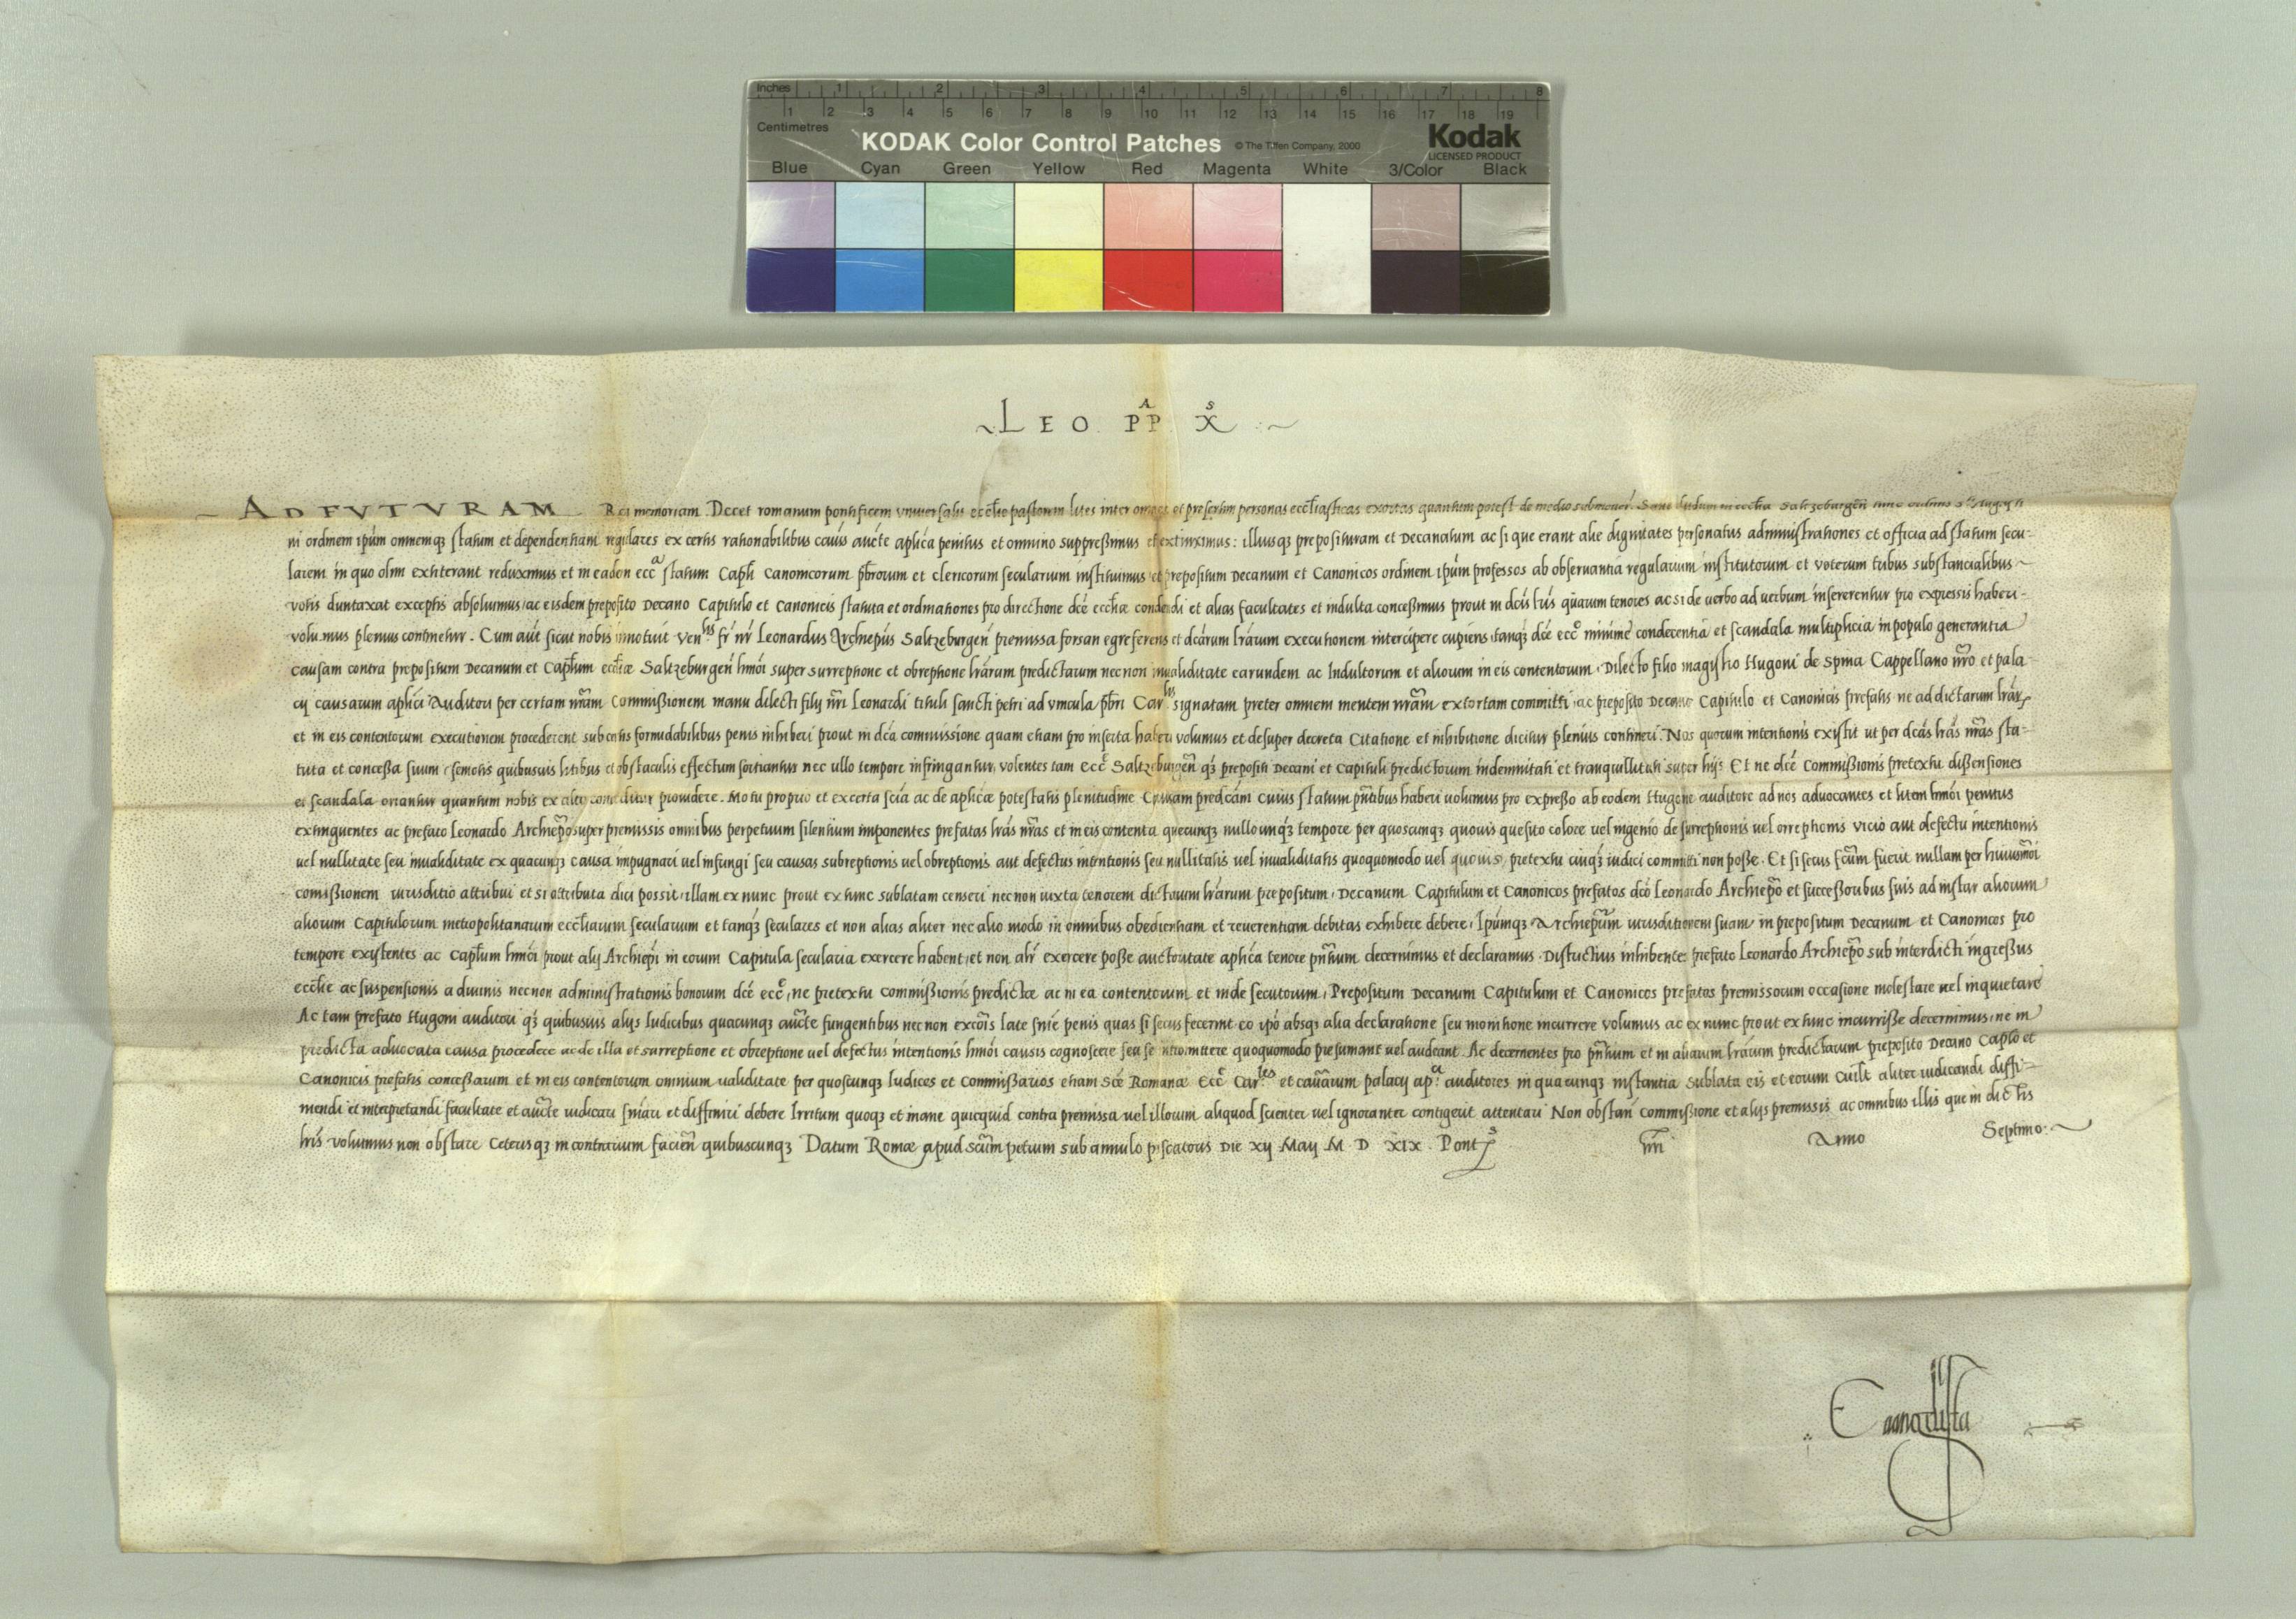 Inches 1 2 3 4 5 6 7 8
1 2 3 4 5 6 7 8 9 10 11 12 13 14 15 16 17 18 19
Centimetres
KODAK Color Control Patches © The Tiffen Company, 2000 Kodak
LICENSED PRODUCT
Blue Cyan Green Yellow Red Magenta White 3/Color Black
LEO PP^A X^s
AD FVTVRAM Rei memoriam. Decet romanum pontificem vniuersalis eccl̃ie pastorem lites inter omnes et presertim personas eccl̃iasticas exortas quantum potest de medio submouer̃. Sane dudum in eccl̃ia Saltzeburgeñ tunc ordinis s^ti Augusti
ni ordinem ip̃um omnemq; statum et dependentiam regulares ex certis rationabilibus cauis aucte aplica penitus et omnino suppressimus et extinximus: illiusq; preposituram et Decanatum ac si que erant alie dignitates personatus administrationes et officia ad statum secu-
larem in quo olim extiterant reduximus et in eadem ecc^a statum Capli Canonicorum p̃brorum et clericorum secularium instituimus et prepositum Decanum et Canonicos ordinem ip̃um professos ab obseruantia regularium institutorum et votorum tribus substancialibus
votis duntaxat exceptis absoluimus, ac eisdem preposito Decano Capitulo et Canonicis statuta et ordinationes pro directione dcẽ eccl̃iæ condendi et alias facultates et indulta concessimus prout in dcĩs lr̃is quarum tenores ac si de uerbo ad uerbum insererentur pro expressis haberi-
volumus plenius continetur. Cum aut̃ sicut nobis innotuit Ven^lis fr̃ nr̃ Leonardus Archiep̃us Saltzeburgeñ premissa forsan egre ferens et dcãrum lr̃arum executionem intercipere cupiens, tanq; dcẽ eccẽ minime condecentia et scandala multiplicia in populo generantia
causam contra prepositum Decanum et Capl̃um eccl̃iæ Saltzeburgeñ hmõi super surreptione et obreptione lr̃arum predictarum necnon inualiditate earundem ac Indultorum et aliorum in eis contentorum. Dilecto filio magistro Hugoni de Spina Cappellano nr̃o et pala-
cij causarum aplici Auditori per certam nr̃am Commissionem manu dilecti filij nr̃i Leonardi tituli sancti petri ad vincula p̃bri Car^lis signatam preter omnem mentem nr̃am extortam committi, ac preposito Decano Capitulo et Canonicis prefatis ne ad dictarum lr̃ar̃
et in eis contentorum executionem procederent sub certis formidabilibus penis inhiberi prout in dcã commissione quam etiam pro inserta haberi volumus et desuper decreta Citatione et inhibitione dicitur plenius contineri. Nos quorum intentionis existit ut per dcãs lr̃as nr̃as sta-
tuta et concessa suum semotis quibusuis litibus et obstaculis effectum sortiantur nec ullo tempore infringantur, volentes tam eccẽ Saltzeburgeñ q; prepositi Decani et Capituli predictorum indemnitati et tranquillitati super hijs Et ne dcẽ Commissionis pretextu dissensiones
et scandala oriantur quantum nobis ex alto conceditur prouidere. Motu proprio et ex certa scĩa ac de aplicæ potestatis plenitudine Causam predcãm cuius statum pñtibus haberi uolumus pro expresso ab eodem Hugone auditore ad nos aduocantes et litem hmõi penitus
extinguentes ac prefato Leonardo Archiep̃o super premissis omnibus perpetuum silentium imponentes prefatas lr̃as nr̃as et in eis contenta quecunq; nullo unq; tempore per quoscunq; quouis quesito colore uel ingenio de surreptionis uel orreptionis vicio aut defectu intentionis
uel nullitate seu inualiditate ex quacunq; causa impugnari uel infringi seu causas subreptionis uel obreptionis aut defectus intentionis seu nullitatis uel inualiditatis quoquomodo uel quouis pretextu cuiq; iudici committi non posse. Et si secus fcũm fuerit nullam per huiusmõi
comissionem iurisditio attribui et si attributa dici possit, illam ex nunc prout ex tunc sublatam censeri necnon iuxta tenorem dictarum lr̃arum prepositum, Decanum Capitulum et Canonicos prefatos dcõ Leonardo Archiep̃o et successoribus suis ad instar aliorum
aliorum Capitulorum metropolitanarum eccl̃iarum secularium et tanq; seculares et non alias aliter nec alio modo in omnibus obedientiam et reuerentiam debitas exhibere debere, Ip̃umq; Archiep̃um iurisditionem suam in prepositum Decanum et Canonicos pro
tempore existentes ac Capl̃um hmõi prout alij Archiep̃i in eorum Capitula secularia exercere habent, et non alr̃ exercere posse auctoritate aplica tenore pñtium decernimus et declaramus. Districtius inhibentes prefato Leonardo Archiep̃o sub interdicti ingressus
eccl̃ie ac suspensionis a diuinis necnon administrationis bonorum dcẽ eccẽ, ne pretextu commissionis predictæ ac in ea contentorum et inde secutorum, Prepositum Decanum Capitulum et Canonicos prefatos premissorum occasione molestare uel inquietare
Ac tam prefato Hugoni auditori q; quibusuis alijs Iudicibus quacunq; aucte fungentibus necnon excoĩs late snĩe penis quas si secus fecerint eo ip̃o absq; alia declaratione seu monitione incurrere volumus ac ex nunc prout ex tunc incurrisse decernimus, ne in
predicta aduocata causa procedere ac de illa et surreptione et obreptione uel defectus intentionis hmõi causis cognoscere seu se intromittere quoquomodo presumant uel audeant. Ac decernentes pro pñtium et in aliarum lr̃arum predictarum preposito Decano Caplo et
Canonicis prefatis concessarum et in eis contentorum omnium ualiditate per quoscunq; Iudices et Commissarios etiam Scẽ Romanæ Eccẽ Car^les et cauãrum palacij ap^ci auditores in quacunq; instantia sublata eis et eorum cuilt aliter iudicandi diffi-
niendi et interpretandi facultate et aucte iudicari snĩari et diffiniri debere Irritum quoq; et inane quicquid contra premissa uel illorum aliquod scienter uel ignoranter contigerit attentari Non obstañ commissione et alijs premissis ac omnibus illis que in dictis
lr̃is volumus non obstare Ceterisq; in contrarium facieñ quibuscunq; Datum Romæ apud scũm petrum sub annulo piscatoris Die xij Maij M D XIX. Pont^s nr̃i Anno Septimo.
Euangelista